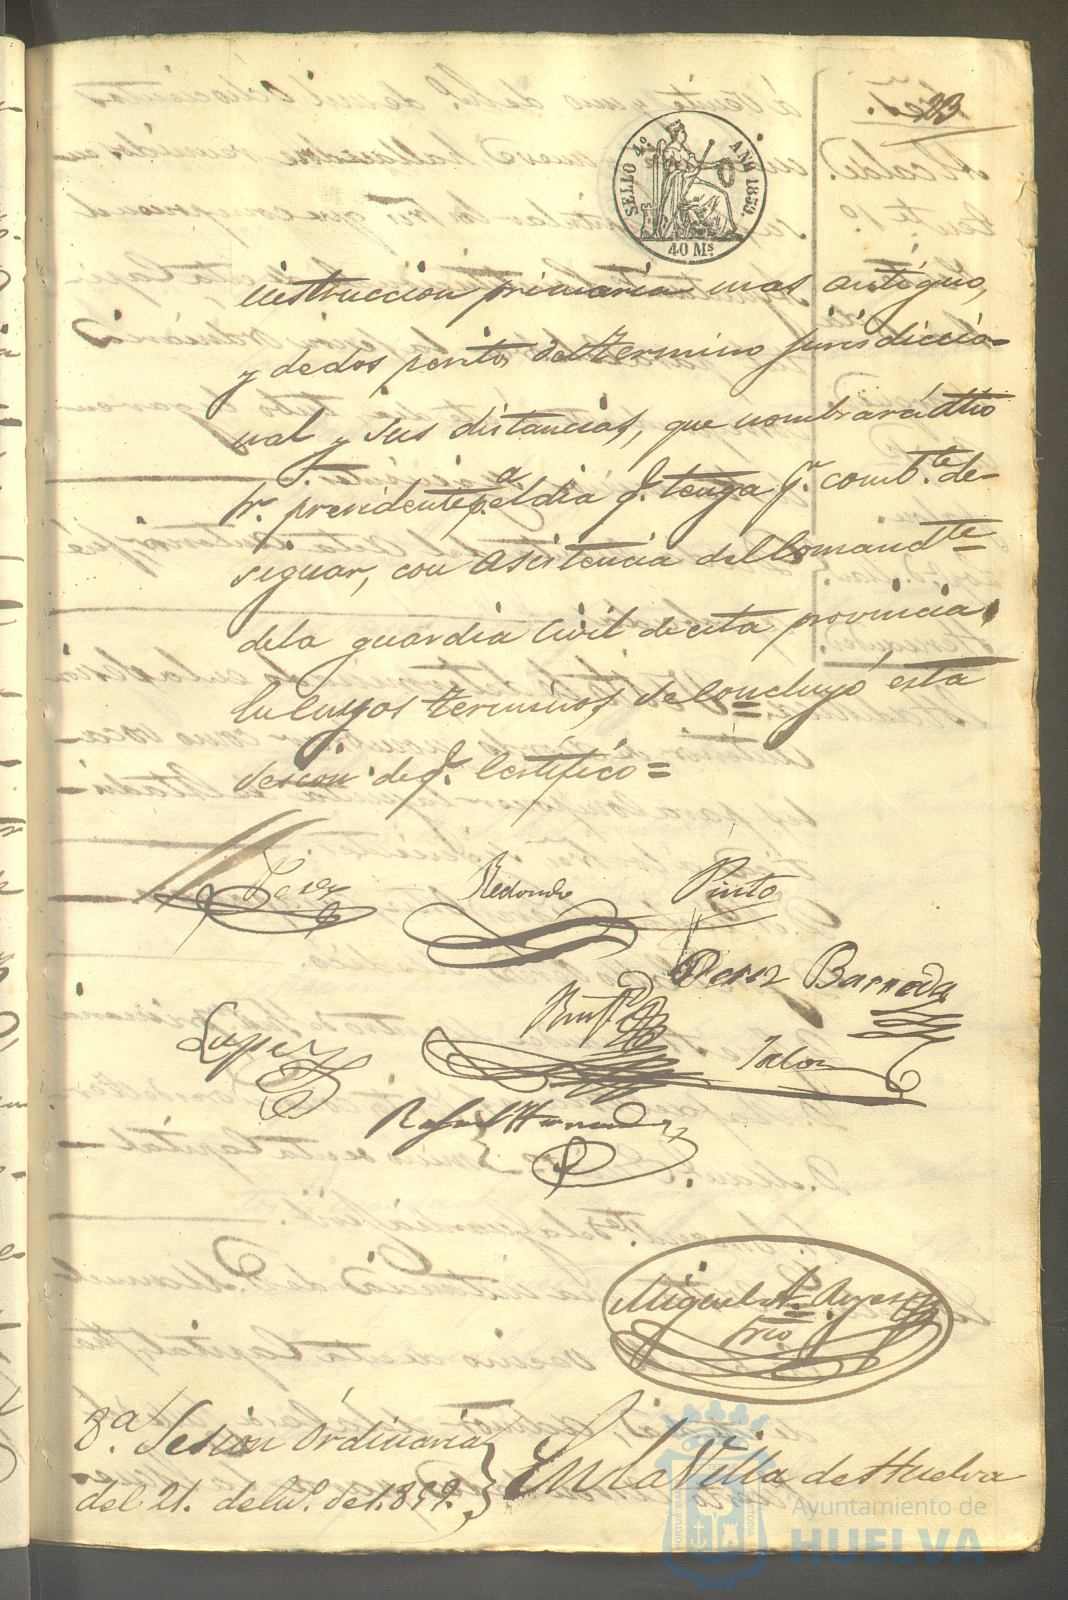 23
SELLO 4º. AÑO 1859.
40 Ms.
instruccion primaria mas antiguo,
y dedos peritos del termino jurisdiccio=
nal y sus distancias, que nombrará dho
Sr. presidente p.a el dia q.e tenga p.r comb.te de=
signar, con asistencia del Comand.te
dela guardia Civil de esta provincia.
En Cuyos terminos, se Concluyó esta
sesion de q.e Certifico=
Redondo
Pinto
Perez
Barreda
Lopez
Rafael Hernandez
Miguel
Srio
8.a Sesion Ordinaria
del 21. de En.o de 1.859.
En la Villa de Huelva
Ayuntamiento de
HUELVA